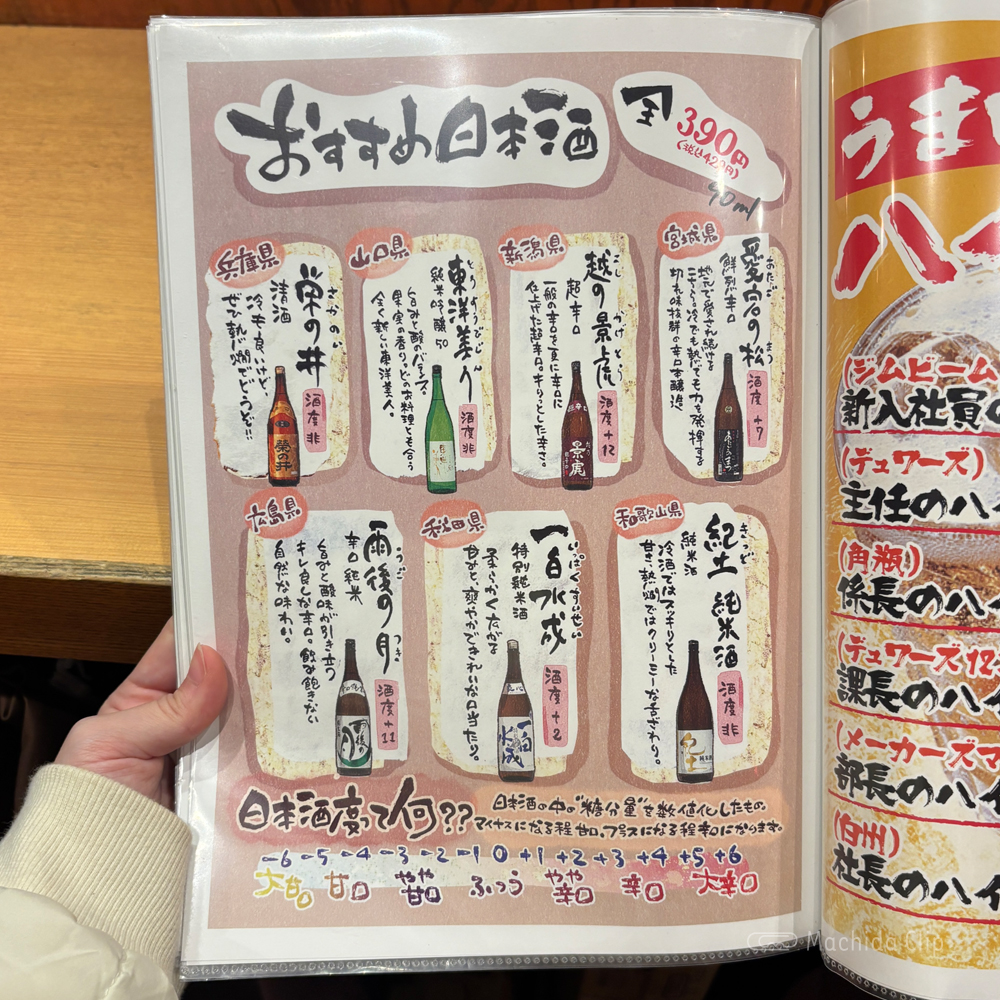 おすすめ日本酒
全
390円
(税込429円)
90ml
兵庫県
栄の井
さかのい
清酒
冷も良いけど、
ぜひ熱燗でどうぞ!!
酒度 非
山口県
東洋美人
とうようびじん
純米吟醸 50
旨みと酸のバランス。
果実の香りとどのお料理とも合う
全く新しい東洋美人。
酒度 非
新潟県
越の景虎
こしのかげとら
超辛口
一般の辛口を更に辛口に
仕上げた超辛口。キリッとした辛さ。
酒度 +12
宮城県
愛宕の松
あたごのまつ
鮮烈辛口
地元で愛され続ける
こちら。冷でも熱でも力を発揮する
切れ味抜群の辛口本醸造
酒度 +7
広島県
雨後の月
うごのつき
辛口純米
旨みと酸味が引き立つ
キレ良しな辛口。飲み飽きない
自然な味わい。
酒度 +11
秋田県
一白水成
いっぱくすいせい
特別純米酒
柔らかくたおやかな
甘みと、爽やかできれいな口当たり。
酒度 +2
和歌山県
紀土 純米酒
きっど
純米酒
冷酒ではスッキリとした
甘さ、熱燗ではクリーミーな舌ざわり。
酒度 非
日本酒度って何??
日本酒の中の"糖分量"を数値化したもの
マイナスになる程甘口、プラスになる程辛口になります。
-6 -5 -4 -3 -2 -1 0 +1 +2 +3 +4 +5 +6
大甘口 甘口 やや甘口 ふつう やや辛口 辛口 大辛口
うま
ハイ
(ジムビーム
新入社員の
(デュワーズ)
主任のハイ
(角瓶)
係長のハイ
(デュワーズ12
課長のハイ
(メーカーズマ
部長のハイ
(白州)
社長のハイ
Machida Clip